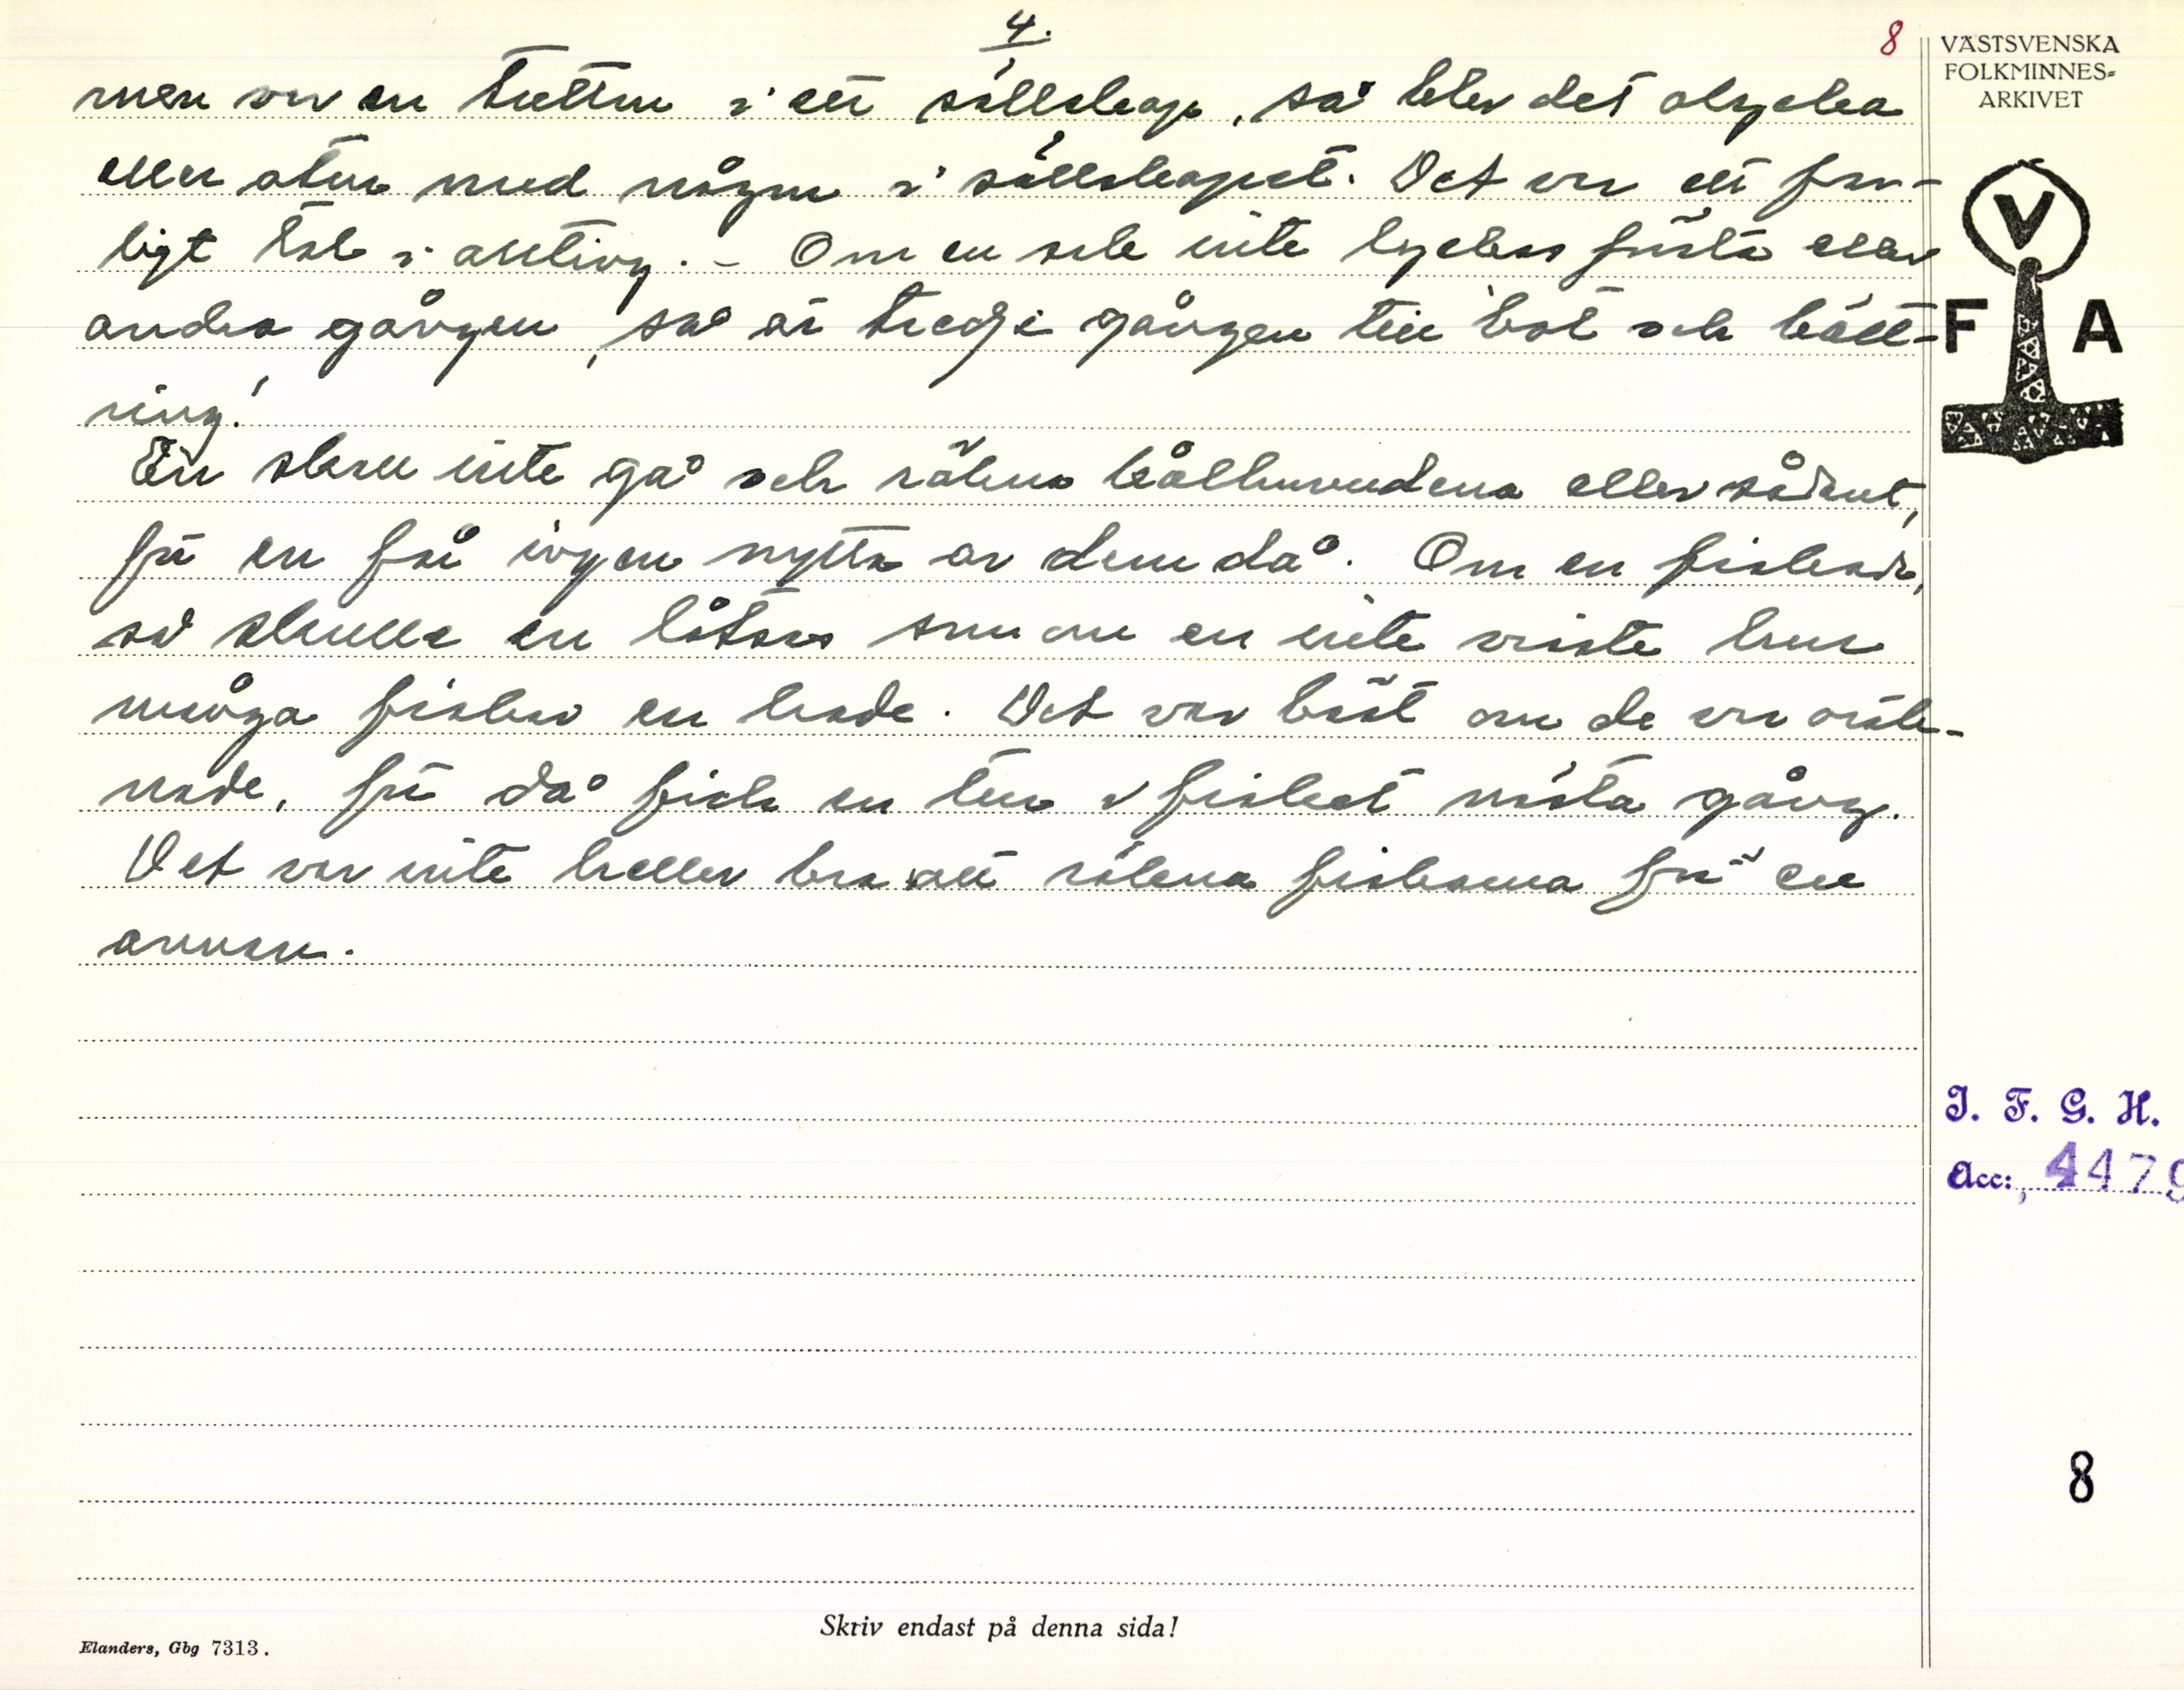 4.
8
VÄSTSVENSKA
FOLKMINNES-
ARKIVET
men var en tretton i ett sällskap, så blev det olycka
eller otur med någon i sällskapet. Det var ett far-
ligt tal i allting. - Om en icke inte lyckas första eller
andra gången, så är tredje gången till bot och bätt-
ring!
En skall inte gå och räkna kålhuvudena eller sådant,
för en får ingen nytta av dem då. Om en fiskade,
så skulle en låtsas som om en inte visste hur
många fiskar en hade. Det var bäst om de var oräk-
nade, för då fick en tur i fisket nästa gång.
Det var inte heller bra att räkna fiskarna för en
annan.
V
F A
I. F. G. H.
Acc:, 4479
8
Skriv endast på denna sida!
Elanders, Gbg 7313.